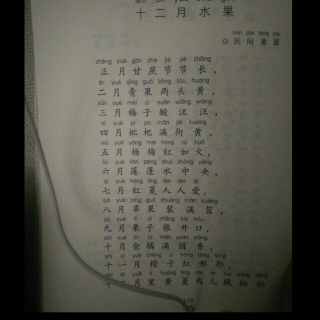 十二月水果
◎民间童谣
zhēng yuè gān zhe jié jié cháng
正月甘蔗节节长，
èr yuè qīng guǒ liǎng tóu huáng
二月青果两头黄，
sān yuè méi zi suān wāng wāng
三月梅子酸汪汪，
sì yuè pí pa mǎn jiē huáng
四月枇杷满街黄，
wǔ yuè yáng méi hóng rú huǒ
五月杨梅红如火，
liù yuè lián peng shuǐ zhōng yāng
六月莲蓬水中央，
qī yuè hóng líng rén rén ài
七月红菱人人爱，
bā yuè píng guǒ zhuāng mǎn kuāng
八月苹果装满筐，
jiǔ yuè lì zi zhāng kāi kǒu
九月栗子张开口，
shí yuè jīn jú mǎn yuán xiāng
十月金橘满园香，
shí yī yuè chéng zi hóng tōng tōng
十一月橙子红彤彤，
月里黄菱肉儿脆松松。